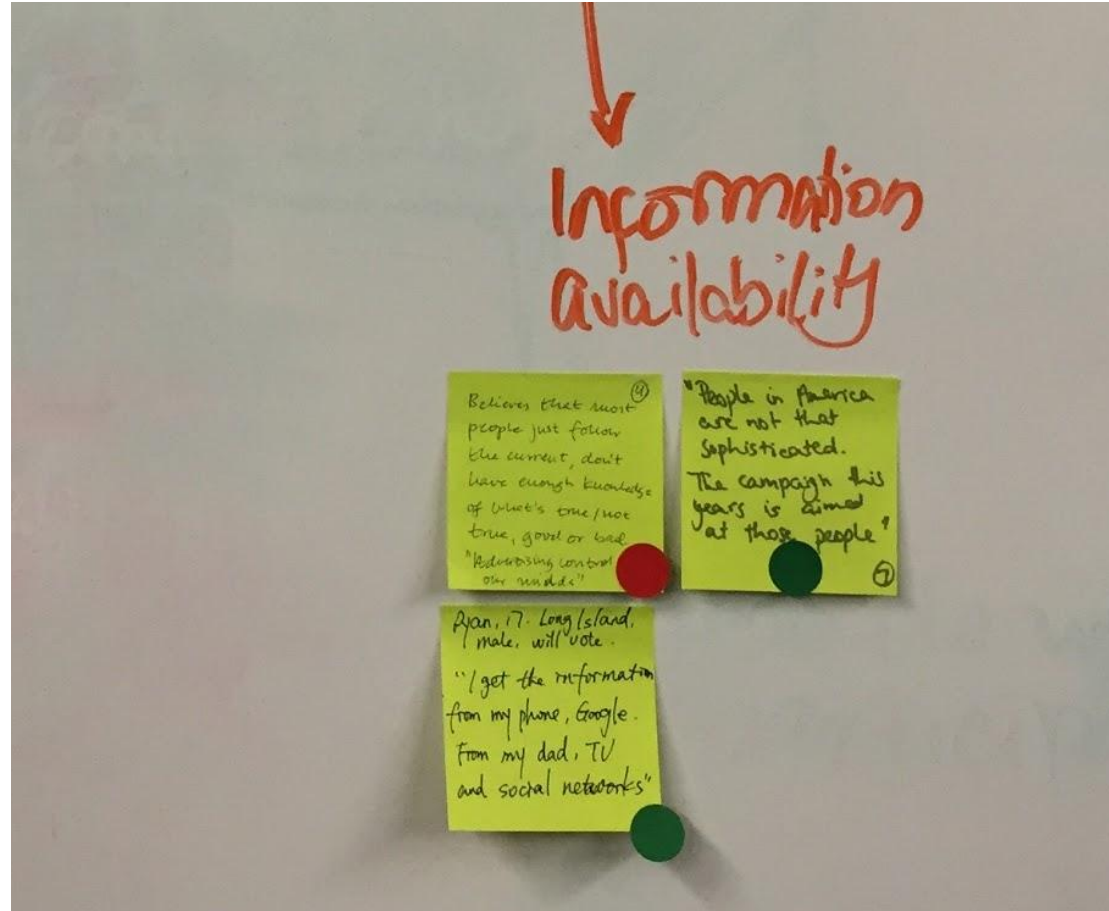 Information
availability
④
Believes that most
people just follow
the current, don't
have enough knowledge
of what's true/not
true, good or bad.
"Advertising control
our minds"
"People in America
are not that
sophisticated.
The campaign this
years is aimed
at those people"
⑦
Ryan, 17. Long Island,
male, will vote.
"I get the information
from my phone, Google.
From my dad, TV
and social networks"